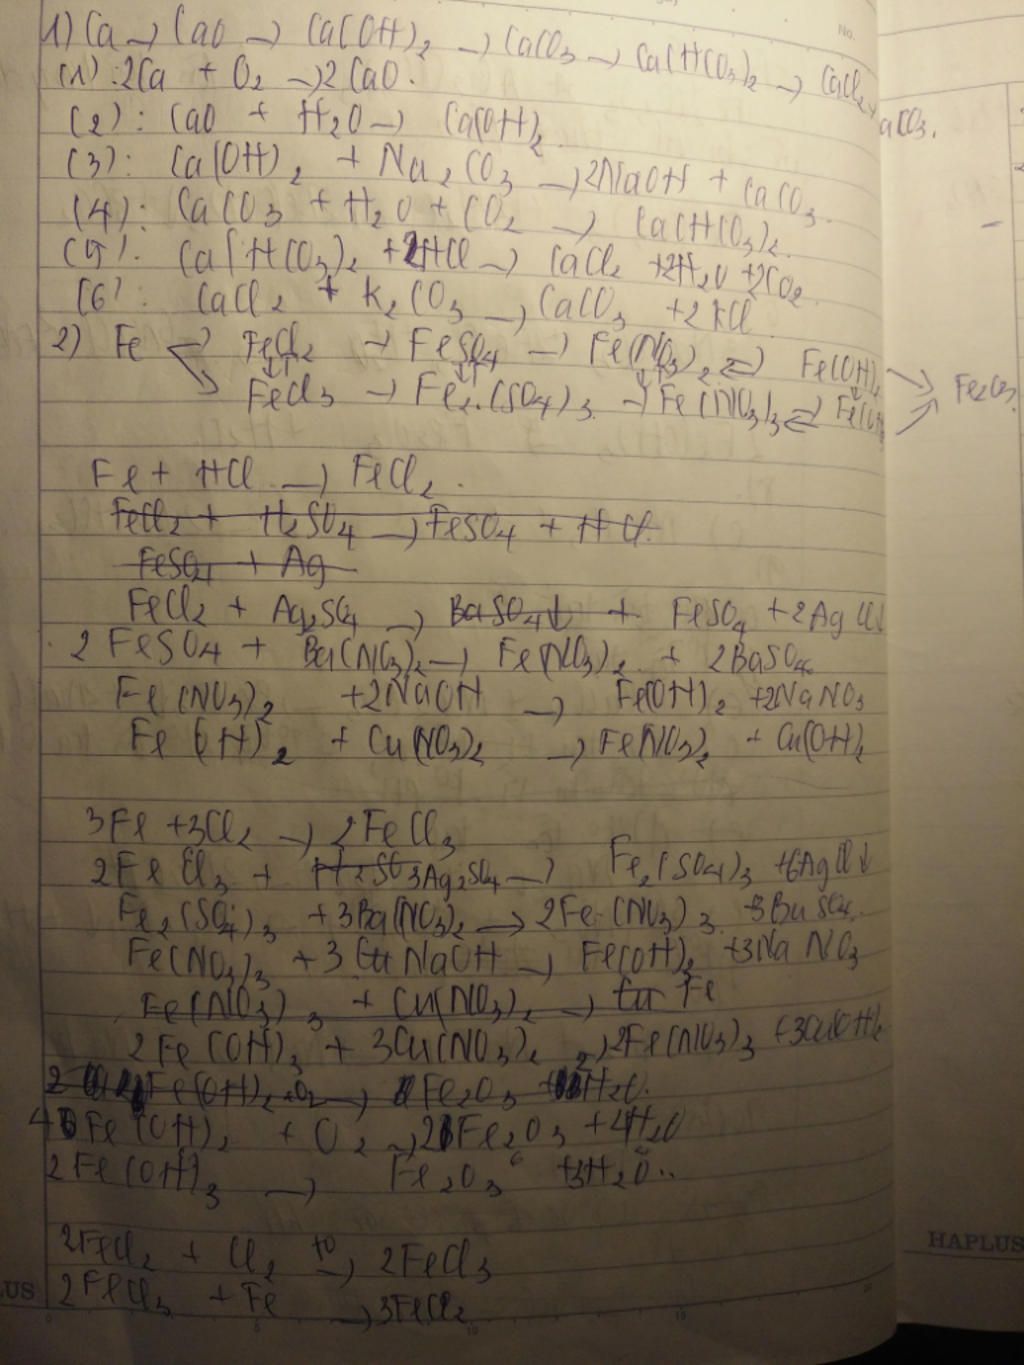 1) Ca → CaO → Ca(OH)2 → CaCO3 → Ca(HCO3)2 → CaCl2 → aCO3.
(1): 2Ca + O2 → 2CaO.
(2): CaO + H2O → Ca(OH)2
(3): Ca(OH)2 + Na2CO3 → 2NaOH + CaCO3.
(4): CaCO3 + H2O + CO2 → Ca(HCO3)2.
(5): Ca(HCO3)2 + 2HCl → CaCl2 + 2H2O + 2CO2
(6): CaCl2 + K2CO3 → CaCO3 + 2KCl
2) Fe → FeCl2 → FeSO4 → Fe(NO3)2 ⇌ Fe(OH)2 → Fe2O3.
→ FeCl3 → Fe2(SO4)3 → Fe(NO3)3 ⇌ Fe(OH)3
Fe + HCl → FeCl2.
FeCl2 + H2SO4 → FeSO4 + HCl.
FeSO4 + Ag
FeCl2 + Ag2SO4 → BaSO4↓ + FeSO4 + 2AgCl↓
2FeSO4 + Ba(NO3)2 → Fe(NO3)2 + 2BaSO4
Fe(NO3)2 + 2NaOH → Fe(OH)2 + 2NaNO3
Fe(OH)2 + Cu(NO3)2 → Fe(NO3)2 + Cu(OH)2
3Fe + 3Cl2 → 2FeCl3
2FeCl3 + H2SO 3Ag2SO4 → Fe2(SO4)3 + 6AgCl↓
Fe2(SO4)3 + 3Ba(NO3)2 → 2Fe(NO3)3 + 3BaSO4.
Fe(NO3)3 + 3 NaOH → Fe(OH)3 + 3NaNO3
Fe(NO3)3 + Cu(NO3)2 → Fe
2Fe(OH)3 + 3Cu(NO3)2 → 2Fe(NO3)3 + 3Cu(OH)2
2 Fe(OH)2 + O2 → Fe2O3 + H2O.
4Fe(OH)2 + O2 → 2Fe2O3 + 4H2O
2Fe(OH)3 → Fe2O3 + 3H2O..
2FeCl2 + Cl2 →to 2FeCl3
2FeCl3 + Fe → 3FeCl2
No.
HAPLUS
LUS